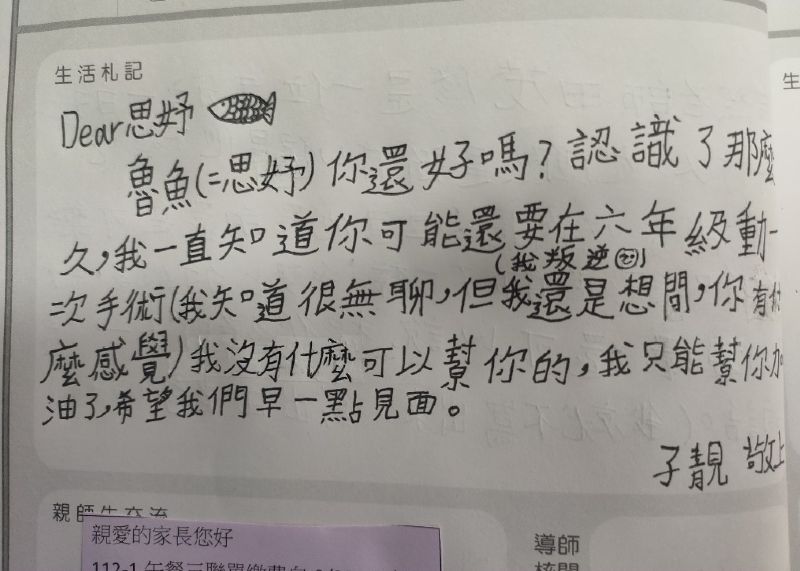 生活札記
Dear思妤
魯魚(=思妤)你還好嗎?認識了那麼
久,我一直知道你可能還要在六年級動一
(我叛逆)
次手術(我知道很無聊,但我還是想問,你有什
麼感覺)我沒有什麼可以幫你的,我只能幫你加
油了,希望我們早一點見面。
子靚 敬上
生
親師生交流
親愛的家長您好
導師